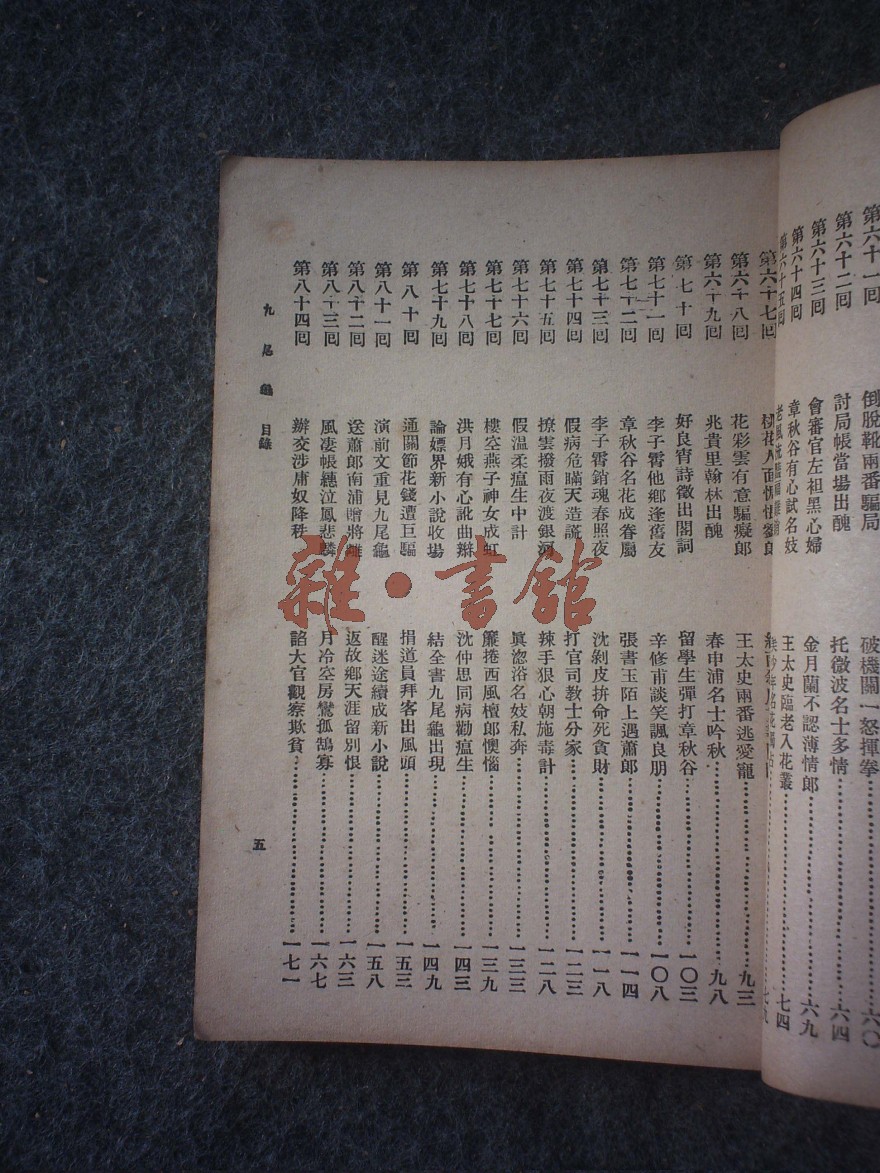 第六十一囘 倒脫靴兩番騙局 破機關一怒揮拳 六〇
第六十二囘 討局帳當場出醜 托微波名士多情 六四
第六十三囘 會審官左袒黑心婦 金月蘭不認薄情郎 六九
第六十四囘 章秋谷有心試名妓 王太史臨老入花叢 七四
第六十五囘
第六十七囘
第六十八囘 花彩雲有意騙癡郎 王太史兩番逃愛寵 九三
第六十九囘 兆貴里翰林出醜 春申浦名士吟秋 九八
第七十囘 好良宵詩徵出閣詞 留學生彈打章秋谷 一〇三
第七十一囘 李子霄他鄉逢舊友 辛修甫談笑諷良朋 一〇八
第七十二囘 章秋谷名花成眷屬 張書玉陌上遇蕭郎 一一四
第七十三囘 李子霄銷魂春照夜 沈剝皮拚命死貪財 一一八
第七十四囘 假病危瞞天造謊 打官司教士分家 一二三
第七十五囘 撩雲撥雨夜渡銀河 辣手狠心朝施毒計 一二八
第七十六囘 假溫柔瘟生中計 眞淴浴名妓私奔 一三三
第七十七囘 樓空燕子神女成虹 簾捲西風檀郎懊惱 一三九
第七十八囘 洪月娥有心訛曲辮 沈仲思同病勸瘟生 一四三
第七十九囘 論嫖界新小說收場 結全書九尾龜出現 一四九
第八十囘 通關節花錢遭巨騙 捐道員拜客出風頭 一五三
第八十一囘 演前文重見九尾龜 醒迷途續成新小說 一五八
第八十二囘 送蕭郎南浦贈將離 返故鄉天涯留別恨 一六三
第八十三囘 風凄帳穗泣鳳悲麟 月冷空房鸞孤鵠寡 一六七
第八十四囘 辦交涉庸奴降秩 諂大官觀察欺貧 一七一
九尾龜 目錄 五
雜·書館